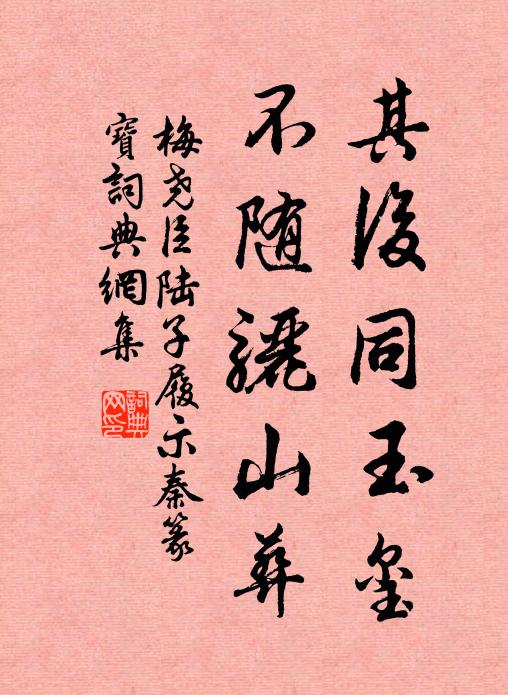 其後同玉璽
不随驪山葬
梅堯臣陸子履示秦篆
寶詞典網集
詞典网印